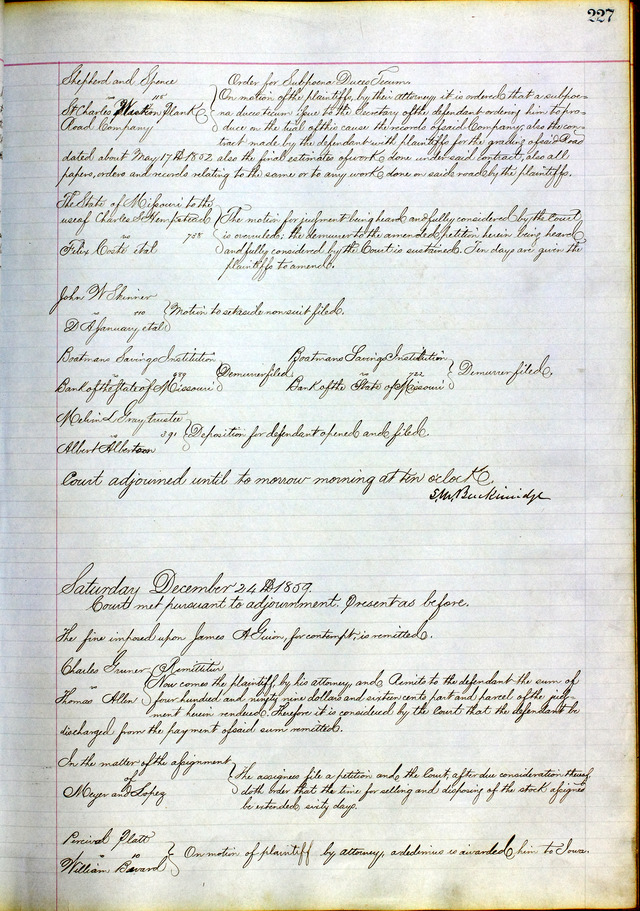 227
Shepherd and Spence Order for Subpoena Duces Tecum
vs On motion of the plaintiffs, by their attorney, it is ordered that a subpoe-
St Charles Western Plank na duces tecum issue to the Secretary of the defendant ordering him to pro-
Road Company duce on the trial of this cause the records of said Company, also the con-
tract made by the defendant with plaintiffs for the grading of said Road
dated about May 17th 1852, also the final estimates of work done under said contract, also all
papers, orders and records relating to the same or to any work done on said road by the plaintiffs.
The State of Missouri to the
use of Charles S Hempstead The motion for judgment being heard and fully considered by the Court
vs 758 is overruled; the demurrer to the amended petition herein being heard
Felix Coste et al and fully considered by the Court is sustained. Ten days are given the
plaintiffs to amend.
John W Skinner
vs Motion to set aside nonsuit filed.
D A January et al
Boatmans Savings Institution Boatmans Savings Institution
vs 989 Demurrer filed. vs 722 Demurrer filed.
Bank of the State of Missouri Bank of the State of Missouri
Melvin L Gray, trustee
vs 391 Deposition for defendant opened and filed.
Albert Albertson
Court adjourned until to morrow morning at ten oclock.
S. M. Breckinridge
Saturday December 24th 1859.
Court met pursuant to adjournment. Present as before.
The fine imposed upon James A Guion, for contempt, is remitted.
Charles Gruner Remittitur
vs Now comes the plaintiff, by his attorney, and Remits to the defendant the sum of
Thomas Allen four hundred and ninety nine dollars and sixteen cents, part and parcel of the judg-
ment herein rendered. Therefore it is considered by the Court that the defendant be
discharged from the payment of said sum remitted.
In the matter of the assignment
of The assignees file a petition and the Court, after due consideration thereof,
Meyer and Lopez doth order that the time for selling and disposing of the stock assigned
be extended sixty days.
Percival Platt
vs 10 On motion of plaintiff by attorney, a dedimus is awarded him to Iowa.
William Bavard